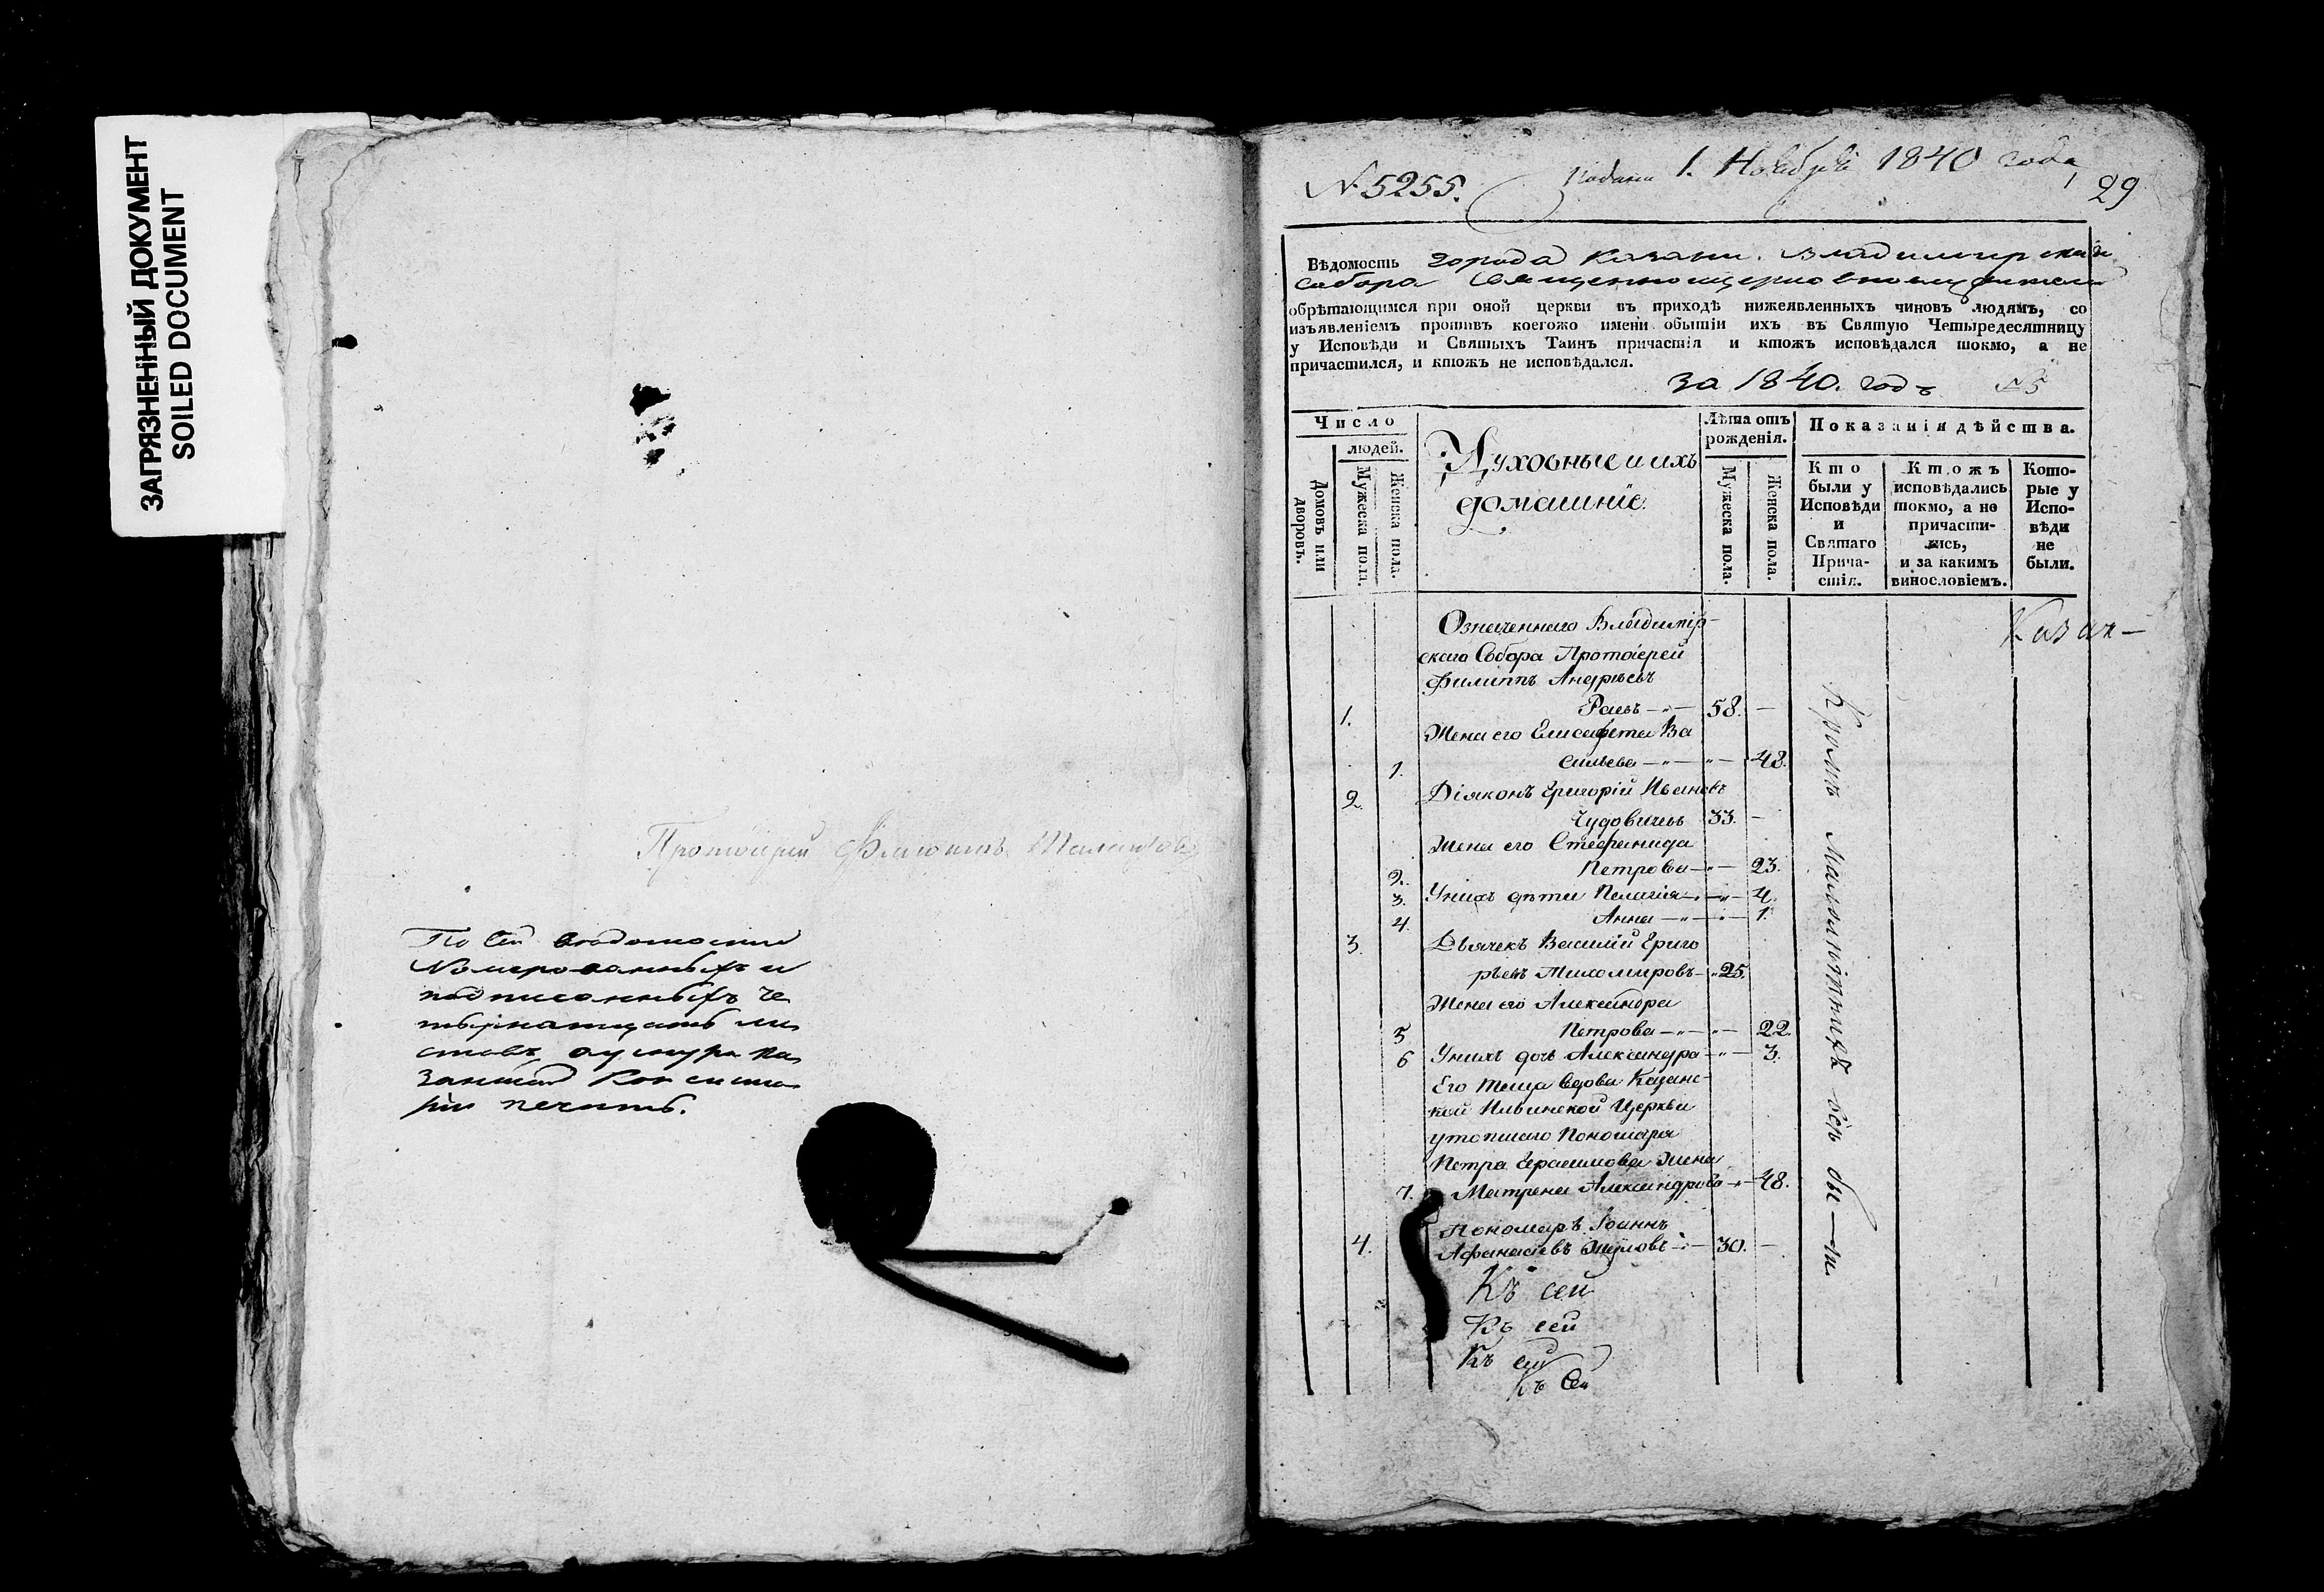 ЗАГРЯЗНЕННЫЙ ДОКУМЕНТ
SOILED DOCUMENT
Протоіерей
По сей вѣдомости
Номерованныхъ и
подписанныхъ че
тырнатцать ли
стовъ, оу шнура Ка
занской Консисто
ріи печать.
№ 5255.
Подана 1. Ноября 1840 года
29
Вѣдомость города Казани. Владимирскаго
собора Священноцерковнослужители
обрѣтающимся при оной церкви въ приходѣ нижеявленныхъ чиновъ людямъ, со
изъявленіемъ противъ коегожо имени обытіи ихъ въ Святую Четыредесятницу
у Исповѣди и Святыхъ Таинъ причастія и ктожъ исповѣдался токмо, а не
причастился, и ктожъ не исповѣдался.
за 1840. годъ №5
Число
людей.
Домовъ или дворовъ.
Мужеска пола.
Женска пола.
Духовные и ихъ
домашніе.
Лѣта отъ
рожденія.
Мужеска пола.
Женска пола.
Показанія дѣйства.
Кто
были у
Исповѣди
и
Святаго
Прича-
стія.
Ктожъ
исповѣдались
токмо, а не
причасти-
лись,
и за какимъ
винословіемъ.
Кото-
рые у
Испо-
вѣди
не
были.
Казан-
Означеннаго Владимір-
скаго Собора Протоіерей
Филиппъ Андреевъ
1. Раевъ 58.
Жена его Елисавета Ва
1. сильева 48.
2. Діяконъ Григорій Ивановъ
Чудовичевъ 33.
Жена его Стефанида
2. Петрова 23.
3. У нихъ дѣти Пелагія 4.
4. Анна 1.
3. Дьячекъ Василій Григо
рьевъ Тихомировъ 25.
Жена его Александра
5 Петрова 22.
6 У нихъ дочь Александра 3.
Его теща вдова Казанс-
кой Ильинской Церкви
утопшаго Пономаря
Петра Герасимова жена
7. Матрена Александрова 48.
Пономарь Іоаннъ
4. Афанасьевъ 30.
Къ сей
Къ сей
Къ сей
Къ сей
Кромѣ малолѣтнихъ всѣ бы-ли.